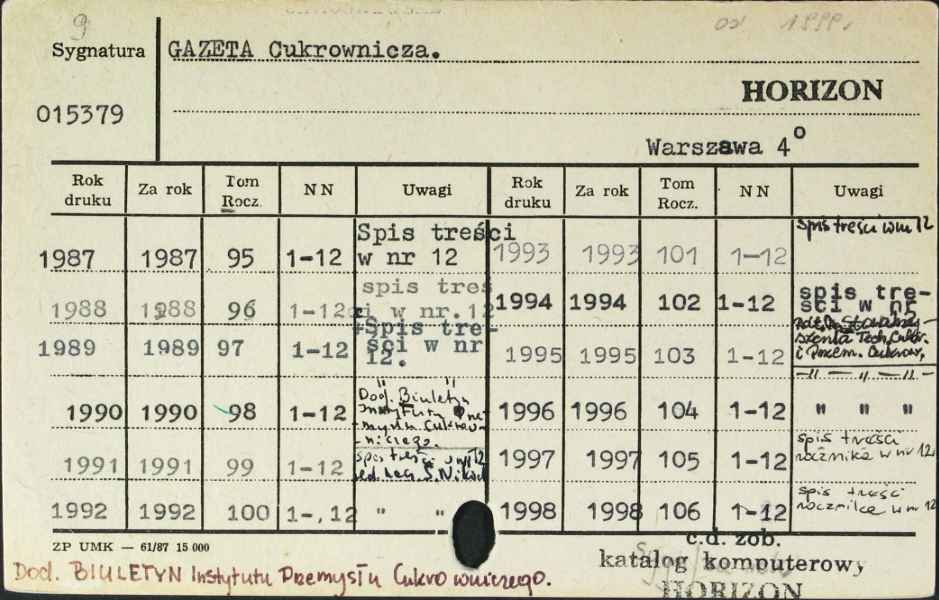 9
od 1999.
Sygnatura GAZETA Cukrownicza.
HORIZON
015379
Warszawa 4°
Rok druku Za rok Tom Rocz. NN Uwagi Rok druku Za rok Tom Rocz. NN Uwagi
1987 1987 95 1-12 Spis treści w nr 12 1993 1993 101 1-12 Spis treści w nr 12
1988 1988 96 1-12 spis treści w nr.12 1994 1994 102 1-12 spis treści w nr
1989 1989 97 1-12 +Spis treści w nr 12. 1995 1995 103 1-12 Techn. Cukr. i Przem. Cukrow.
1990 1990 98 1-12 Dod. Biuletyn Instytutu Przemysłu Cukrowniczego. 1996 1996 104 1-12 " " "
1991 1991 99 1-12 spis treści w nr 12 1997 1997 105 1-12 spis treści rocznika w nr 12
1992 1992 100 1-12 " " 1998 1998 106 1-12 spis treści rocznika w nr 12
ZP UMK — 61/87 15 000
c.d. zob.
katalog komputerowy
HORIZON
Dod. BIULETYN Instytutu Przemysłu Cukrowniczego.